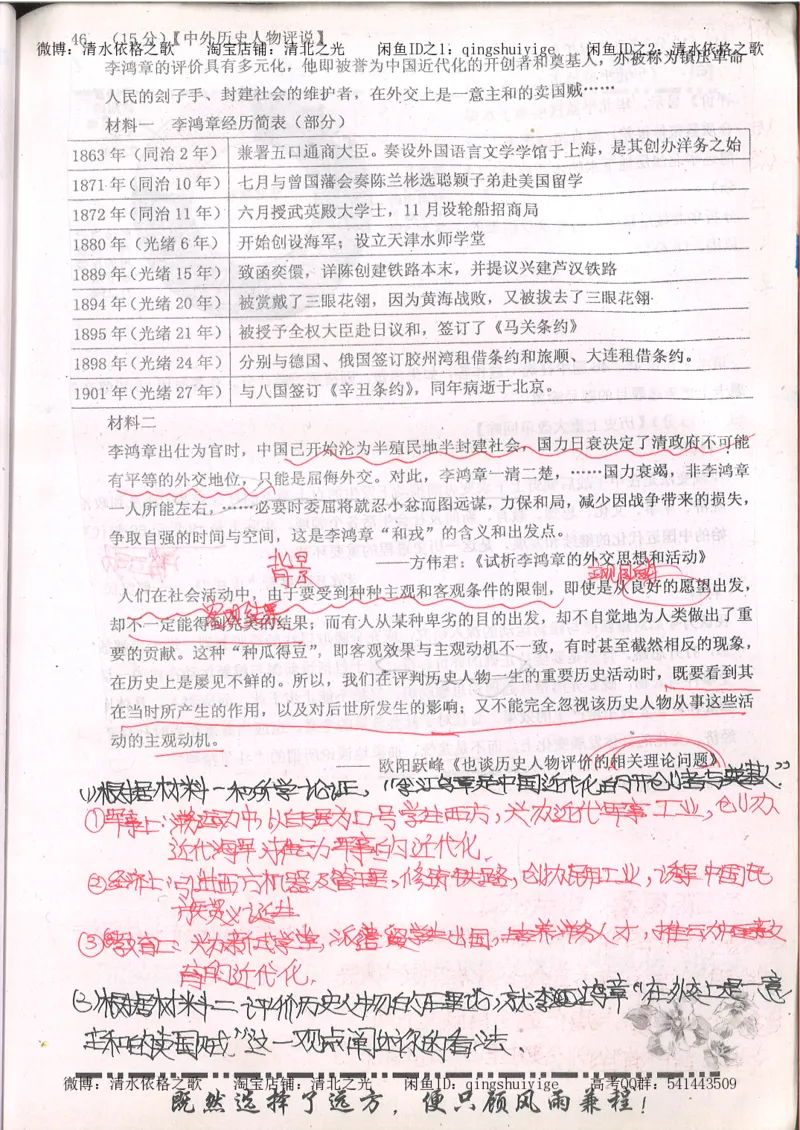 46. (15分)【中外历史人物评说】
微博：清水依格之歌 淘宝店铺：清北之光 闲鱼ID之1：qingshuiyige 闲鱼ID之2：清水依格之歌
李鸿章的评价具有多元化，他即被誉为中国近代化的开创者和奠基人，亦被称为镇压革命
人民的刽子手、封建社会的维护者，在外交上是一意主和的卖国贼……
材料一 李鸿章经历简表（部分）
1863年（同治2年） 兼署五口通商大臣。奏设外国语言文学学馆于上海，是其创办洋务之始
1871年（同治10年） 七月与曾国藩会奏陈兰彬选聪颖子弟赴美国留学
1872年（同治11年） 六月授武英殿大学士，11月设轮船招商局
1880年（光绪6年） 开始创设海军；设立天津水师学堂
1889年（光绪15年） 致函奕儇，详陈创建铁路本末，并提议兴建芦汉铁路
1894年（光绪20年） 被赏戴了三眼花翎，因为黄海战败，又被拔去了三眼花翎
1895年（光绪21年） 被授予全权大臣赴日议和，签订了《马关条约》
1898年（光绪24年） 分别与德国、俄国签订胶州湾租借条约和旅顺、大连租借条约。
1901年（光绪27年） 与八国签订《辛丑条约》，同年病逝于北京。
材料二
李鸿章出仕为官时，中国已开始沦为半殖民地半封建社会，国力日衰决定了清政府不可能
有平等的外交地位，只能是屈侮外交。对此，李鸿章一清二楚，……国力衰竭，非李鸿章
一人所能左右，……必要时委屈将就忍小忿而图远谋，力保和局，减少因战争带来的损失，
争取自强的时间与空间，这是李鸿章“和戎”的含义和出发点。
背景
——方伟君：《试析李鸿章的外交思想和活动》
主观因素
人们在社会活动中，由于要受到种种主观和客观条件的限制，即使是从良好的愿望出发，
客观效果
却不一定能得到完美的结果；而有人从某种卑劣的目的出发，却不自觉地为人类做出了重
要的贡献。这种“种瓜得豆”，即客观效果与主观动机不一致，有时甚至截然相反的现象，
在历史上是屡见不鲜的。所以，我们在评判历史人物一生的重要历史活动时，既要看到其
在当时所产生的作用，以及对后世所发生的影响；又不能完全忽视该历史人物从事这些活
动的主观动机。
——欧阳跃峰《也谈历史人物评价的相关理论问题》
(1)根据材料一和所学论证，“李鸿章是中国近代化的开创者与奠基人”
①军事上：洋务运动中，以自强为口号学生西方，兴办近代军事工业，创办
近代海军，推动军事的近代化.
②经济上：引进西方机器及管理，修筑铁路，创办民用工业，诱导中国民
族资义诞生
③教育上：兴办新式学堂，派遣留学生出国，培养洋务人才，推动中国教
育的近代化.
(2)根据材料二评价历史人物的有里论，就李鸿章“在外交上是一意
主和的卖国贼”这一观点阐述你的看法.
微博：清水依格之歌 淘宝店铺：清北之光 闲鱼ID：qingshuiyige 高考QQ群：541443509
既然选择了远方，便只顾风雨兼程！